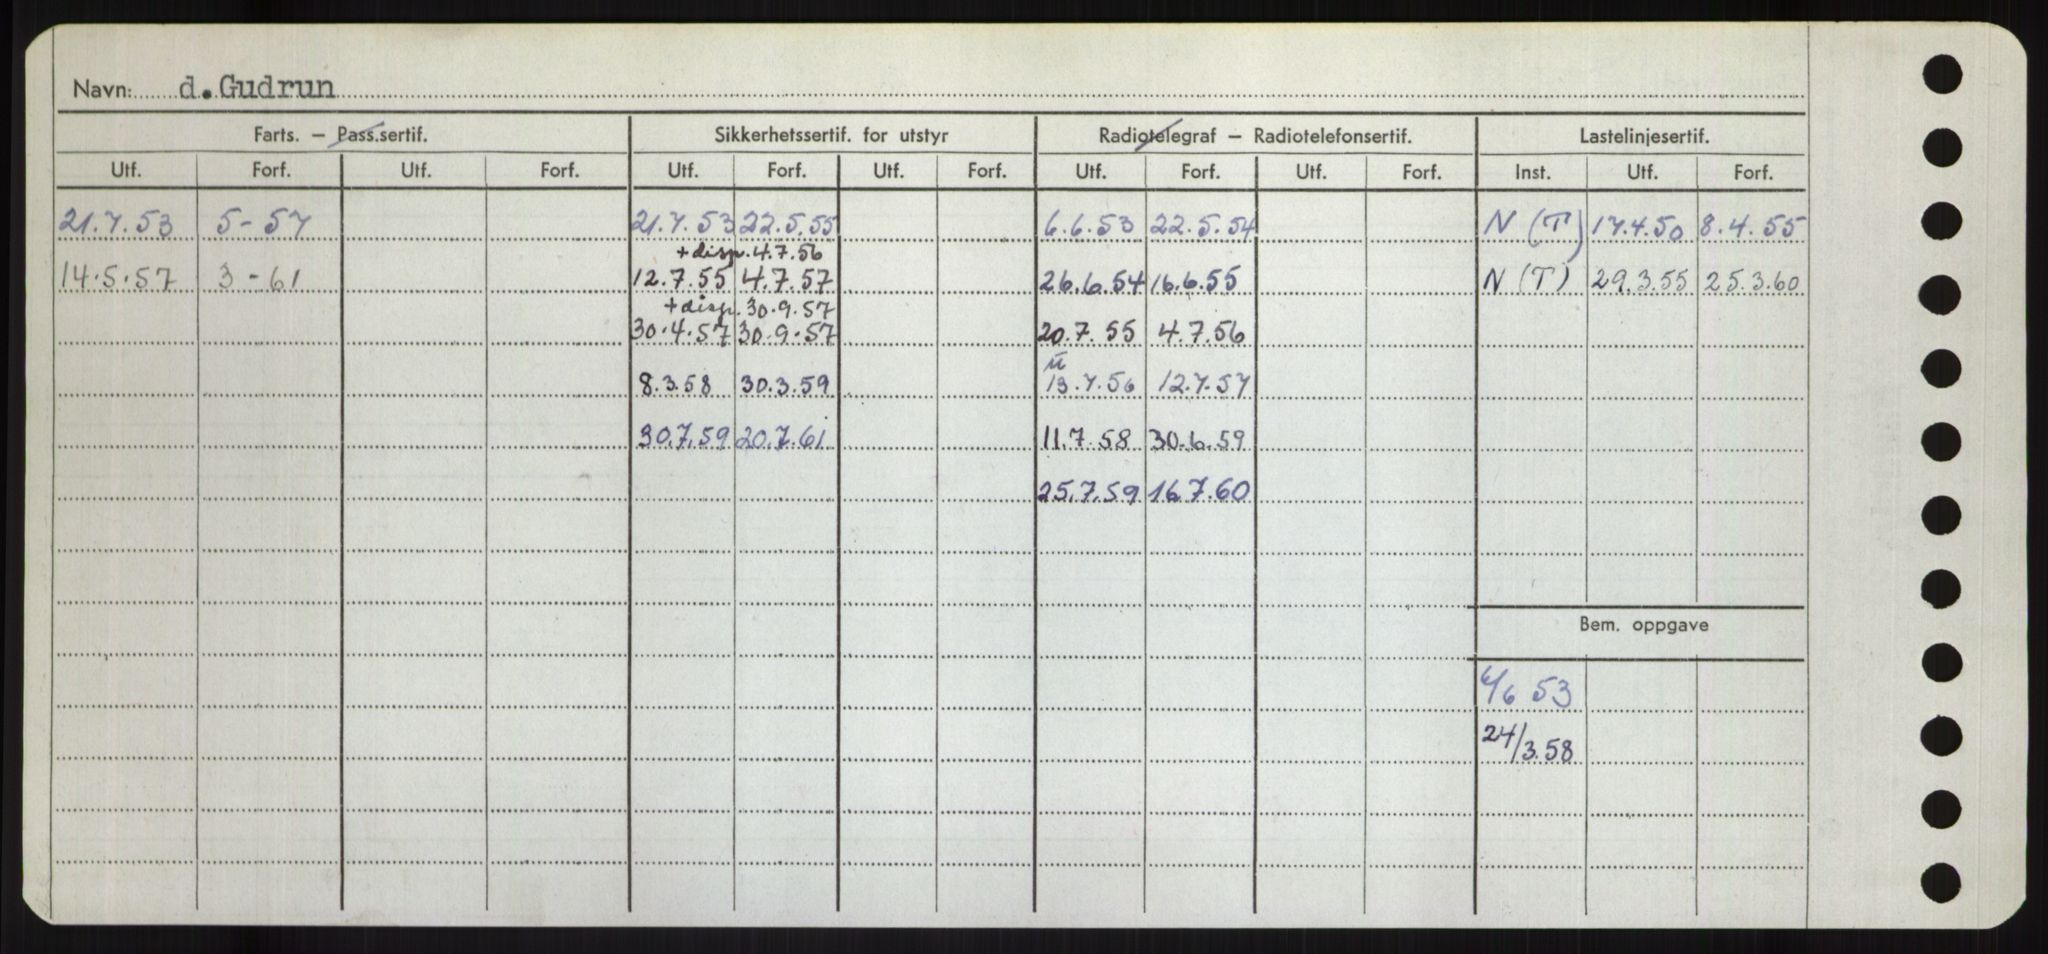 Navn: d. Gudrun
Farts. – Pass.sertif. Sikkerhetssertif. for utstyr Radiotelegraf – Radiotelefonsertif. Lastelinjesertif.
Utf. Forf. Utf. Forf. Utf. Forf. Utf. Forf. Utf. Forf. Utf. Forf. Inst. Utf. Forf.
21.7.53 5-57 21.7.53 22.5.55 6.6.53 22.5.54 N (T) 17.4.50 8.4.55
+ disp. 4.7.56
14.5.57 3-61 12.7.55 4.7.57 26.6.54 16.6.55 N (T) 29.3.55 25.3.60
+ disp. 30.9.57
30.4.57 30.9.57 20.7.55 4.7.56
8.3.58 30.3.59 13.7.56 12.7.57
30.7.59 20.7.61 11.7.58 30.6.59
25.7.59 16.7.60
Bem. oppgave
6/6 53
24/3.58